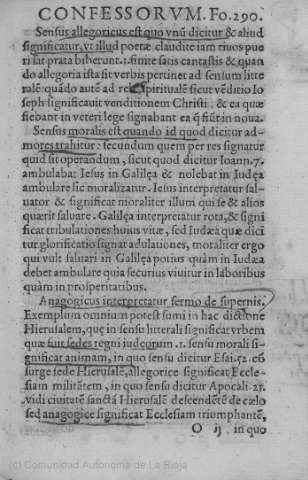 CONFESSORVM. Fo.290.
Sensus allegoricus est quo vnũ dicitur & aliud
significatur, vt illud poetæ claudite iam riuos pue
ri sat prata biberunt. i. finite satis cantastis & quan
do allegoria ista sit verbis pertinet ad sensum litte
ralẽ: quãdo autẽ ad res spirituale sicut vẽditio Io
seph significauit venditionem Christi, & ea quæ
fiebant in veteri lege signabant ea q̃ fiũt in noua.
Sensus moralis est quando id quod dicitur ad
mores trahitur: secundum quem per res signatur
quid sit operandum, sicut quod dicitur Ioann. 7.
ambulabat Iesus in Galilęa & nolebat in Iudęa
ambulare sic moralizant. Iesus interpretatur sal-
uator & significat moraliter illum qui se & alios
quærit saluare. Galilęa interpretatur rota, & signi
ficat tribulationes huius vitæ, sed Iudæa quæ dici
tur glorificatio signat adulationes, moraliter ergo
qui vult saluari in Galilęa potius quàm in Iudæa
debet ambulare quia securius viuitur in laboribus
quàm in prosperitatibus.
Anagogicus interpretatur sermo de supernis.
Exemplum omnium potest sumi in hac dictione
Hierusalem, quę in sensu litterali significat vrbem
quæ fuit sedes regni iudęorum. 1. sensu morali si-
gnificat animam, in quo sensu dicitur Esai. 52. cõ
surge sede Hierusalẽ, allegorice significat Eccle-
siam militãtem, in quo sensu dicitur Apocali. 21.
vidi ciuitatẽ sanctã Hierusalẽ descendẽtẽ de cælo
sed anagogice significat Ecclesiam triumphantẽ,
O ij in quo
(c) Comunidad Autónoma de La Rioja